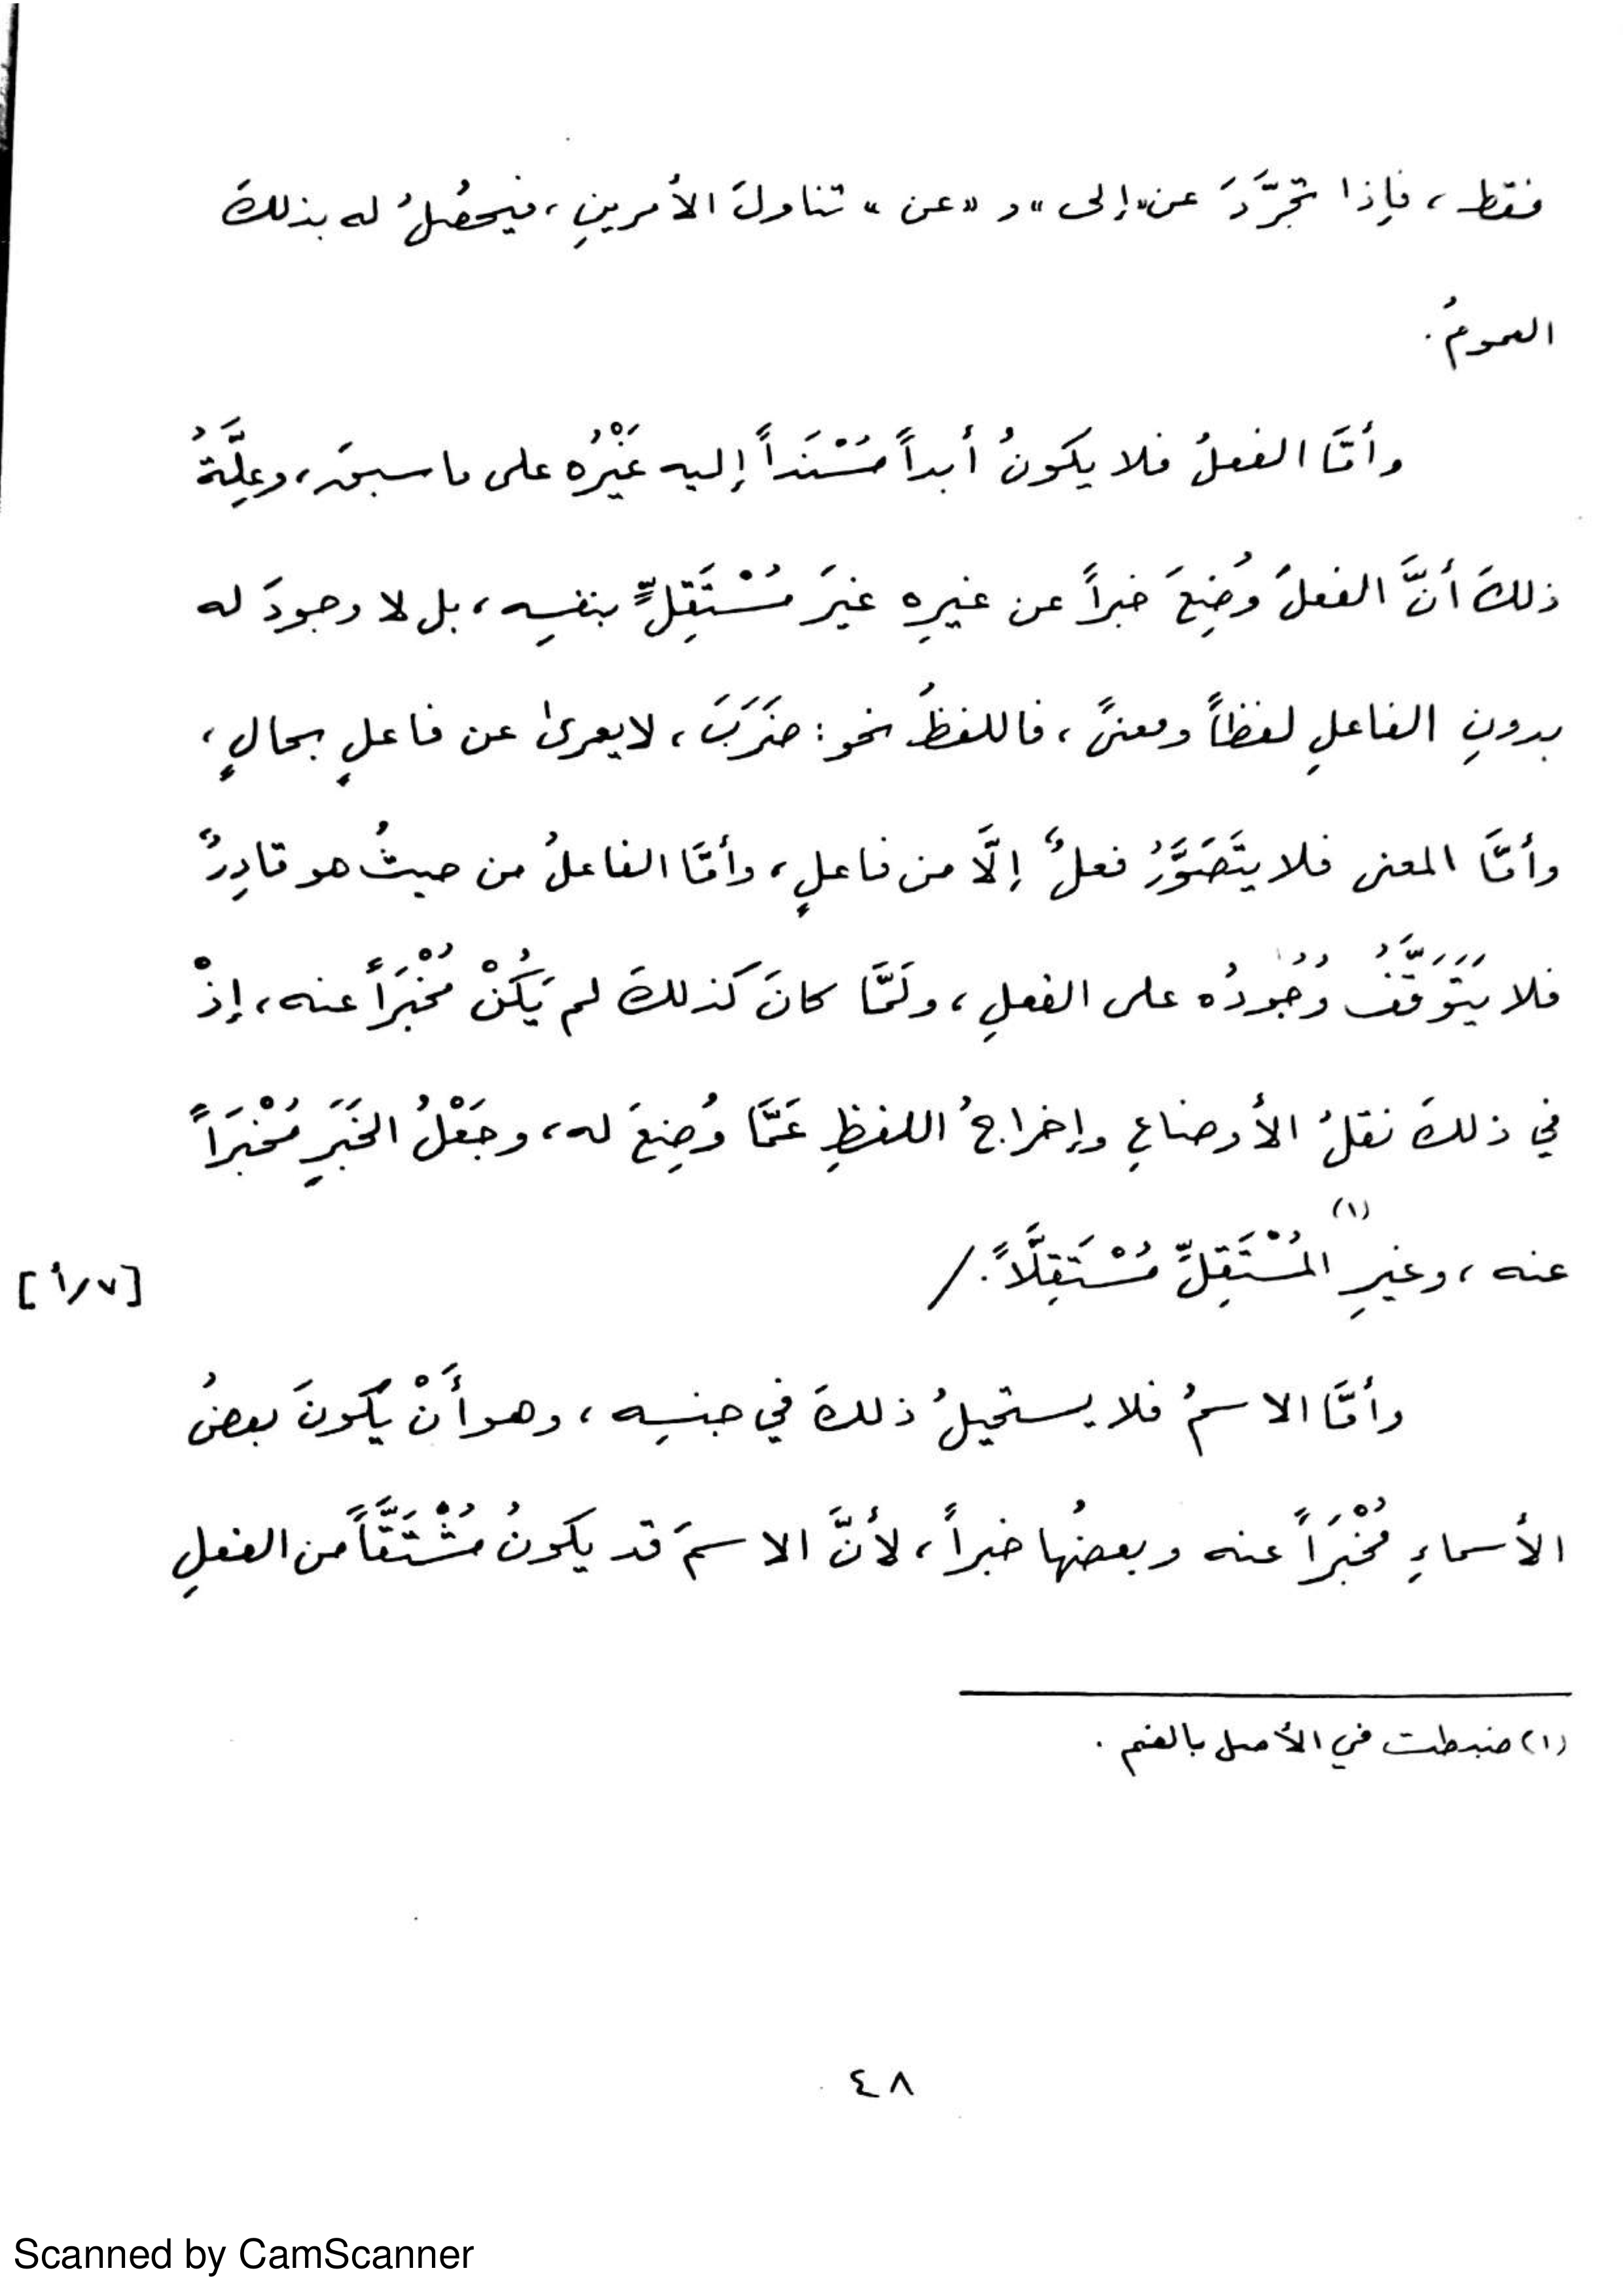 فقط، فإذا تجرَّدَ عن «إلى» و «عن» تناولَ الأمرينِ، فيحصُلُ له بذلكَ
العمومُ.
وأمَّا الفعلُ فلا يكونُ أبداً مُسْنَداً إليه غَيْرُه على ما سبقَ، وعِلَّةُ
ذلكَ أنَّ الفعلَ وُضِعَ خبراً عن غيرِه غيرَ مُسْتَقِلٍّ بنفسِه، بل لا وجودَ له
بدونِ الفاعلِ لفظاً ومعنىً، فاللفظُ نحو: ضَرَبَ، لا يعرىٰ عن فاعلٍ بحالٍ،
وأمَّا المعنى فلا يتَصَوَّرُ فعلٌ إلَّا من فاعلٍ، وأمَّا الفاعلُ من حيثُ هو قادِرٌ
فلا يَتَوَقَّفُ وُجُودُه على الفعلِ، ولَمَّا كانَ كَذلكَ لم يَكُنْ مُخْبَراً عنه، إذْ
في ذلكَ نقلُ الأوضاعِ وإخراجُ اللفظِ عَمَّا وُضِعَ له، وجَعْلُ الخَبَرِ مُخْبَراً
عنه، وغيرِ (١) المُسْتَقِلِّ مُسْتَقِلَّاً. / [٧/أ]
وأمَّا الاسمُ فلا يستحيلُ ذلكَ في جنسِه، وهو أَنْ يَكونَ بعضُ
الأسماءِ مُخْبَراً عنه وبعضُها خبراً، لأنَّ الاسمَ قد يكونُ مُشْتَقَّاً من الفعلِ
(١) ضبطت في الأصل بالضم.
٤٨
Scanned by CamScanner